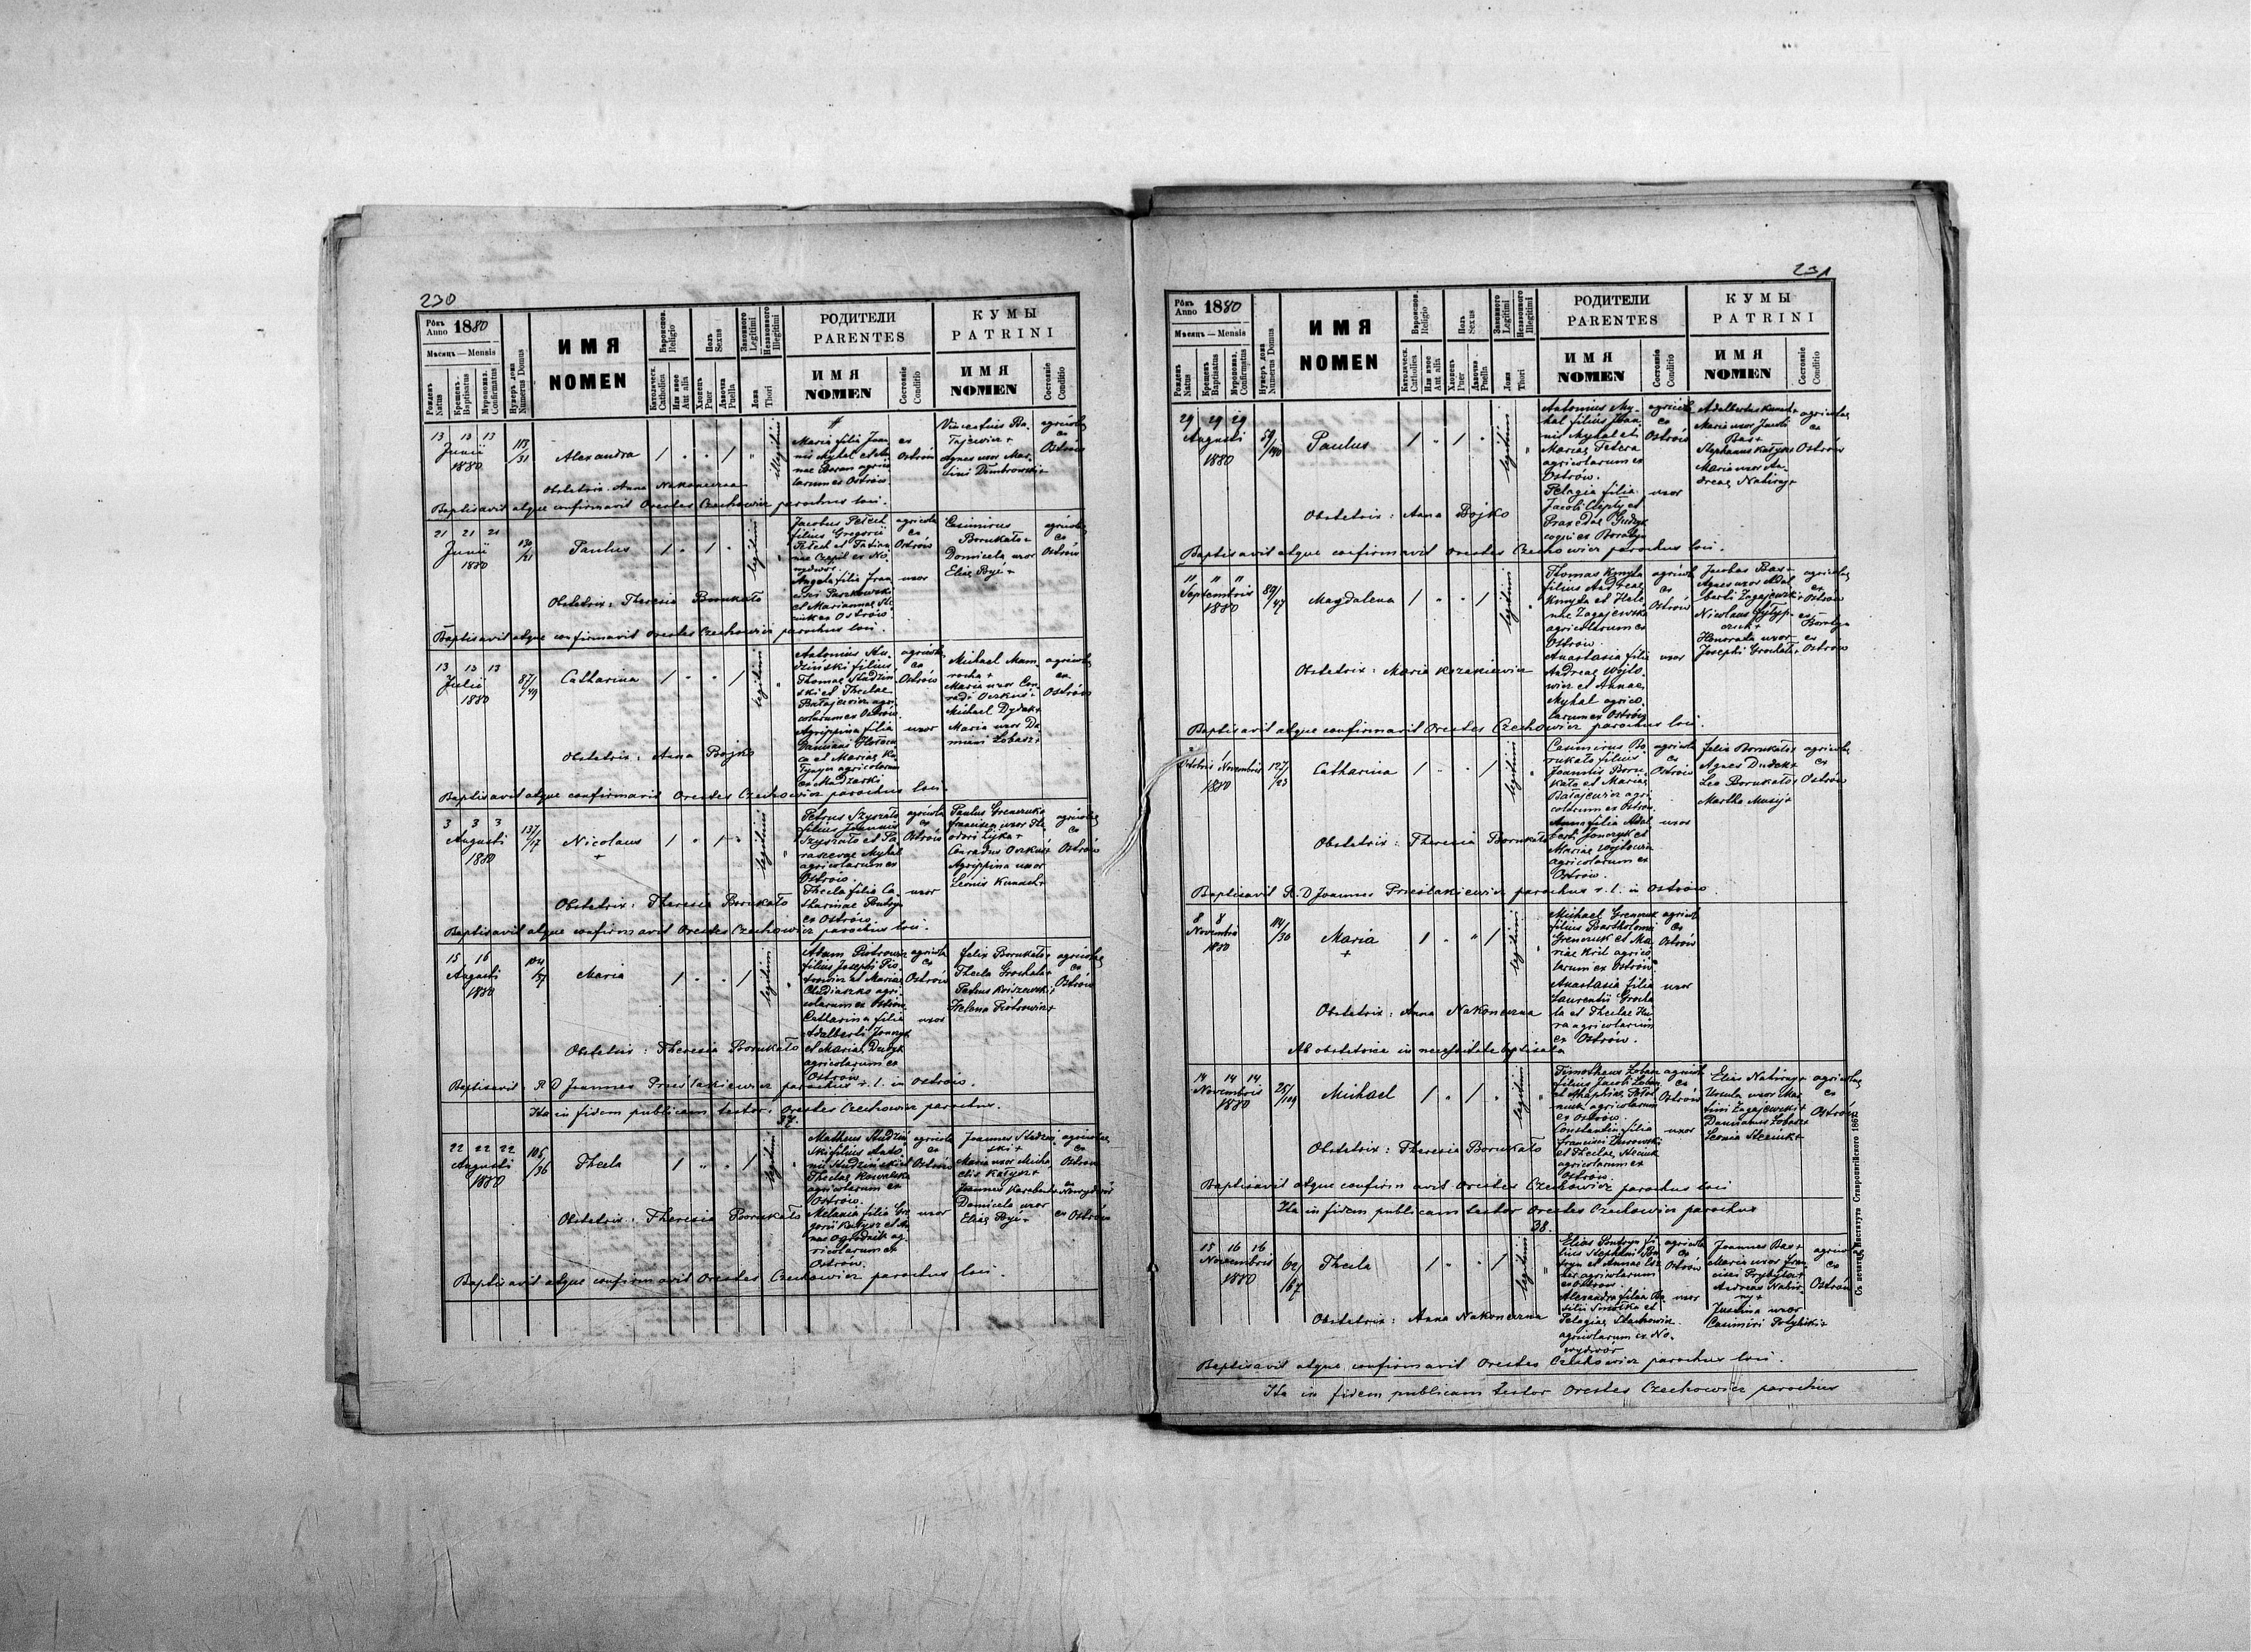 230
Рôкъ Anno 1880
Мѣсяць — Mensis
Рожденъ Natus
Крещенъ Baptisatus
Мѵропомаз. Confirmatus
Нумеръ дома Numerus Domus
ИМЯ
NOMEN
Вѣроиспов. Religio
Католическ. Catholica
Или иное Aut alia
Полъ Sexus
Хлопецъ Puer
Дѣвочка Puella
Законного Legitimi
Незаконного Illegitimi
Ложа Thori
РОДИТЕЛИ
PARENTES
ИМЯ
NOMEN
Состояніе Conditio
КУМЫ
PATRINI
ИМЯ
NOMEN
Состояніе Conditio
13 13 13
Junii
1880
113/31
Alexandra
illegitim
Maria filia Joan
nis Mykal et An
nae Baran agrico
larum ex Ostrów
ex
Ostrów
Vincentius Ba
łajewicz +
Agnes uxor Mar
tini Dumbrowski +
agricolae
ex
Ostrów
Obstetrix: Anna Nakoneczna
Baptisavit atque confirmavit Orestes Czechowicz parochus loci.
21 21 21
Junii
1880
130/21
Paulus
legitim
Jacobus Petech
filius Gregorii
Petech et Tatian
nae Czepil ex No
wydwór.
Angela filia Fran
cisci Paszkowski
et Mariannae
ex Ostrów
agricola
ex
Ostrów
uxor
Casimirus
Borukało +
Domicela uxor
Eliae Byé +
agricolae
ex
Ostrów
Obstetrix: Theresia Borukało
Baptisavit atque confirmavit Orestes Czechowicz parochus loci.
13 13 13
Julii
1880
87/49
Catharina
legitim
Antonius Stu
dziński filius
Thomae Studzin
ski et Theclae
Bałajewicz agri
colarum ex Ostrów.
Agrippina filia
Damiani
ca et Mariae Ka
agricolarum
ex Madzarki
agricola
ex
Ostrów
uxor
Michael Mam
rocha +
Maria uxor Con
radi Oczkuś +
Michael Dydak +
Maria uxor Da
miani Łobasz +
agricolae
ex
Ostrów
Obstetrix: Anna Bojko
Baptisavit atque confirmavit Orestes Czechowicz parochus loci.
3 3 3
Augusti
1880
137/17
Nicolaus
+
legitim
Petrus Szyszato
filius Joannis
Szyszato et Pa
rascevae Mykal
agricolarum ex
Ostrów.
Thecla filia Ca
tharinae Pontryn
ex Ostrów.
agricola
ex
Ostrów
uxor
Paulus Grenczuk +
Francisca uxor The
odori Lijka +
Conradus Oczkuś +
Agrippina uxor
Leonis Kunach +
agricolae
ex
Ostrów
Obstetrix: Theresia Borukało
Baptisavit atque confirmavit Orestes Czechowicz parochus loci.
15 16
Augusti
1880
Maria
legitim
Adam Piotrowicz
filius Josephi Pio
trowicz et Mariae
Chudiaszko agri
colarum ex Ostrów
Catharina filia
Adalberti Jonczyk
et Mariae Dudyk
agricolarum ex
Ostrów
agricola
ex
Ostrów
uxor
Felix Borukało +
Thecla Grochala +
Petrus Kriszewski +
Helena Piotrowicz +
agricolae
ex
Ostrów
Obstetrix: Theresia Borukało
Baptisavit R. D. Joannes Prieślakiewicz parochus r. l. in Ostrów.
Ita in fidem publicam testor. Orestes Czechowicz parochus.
37.
22 22 22
Augusti
1880
106/36
Thecla
legitim
Matheus Studziń
ski filius Anto
nii Studziński et
Theclae Kowalska
agricolarum ex
Ostrów.
Melania filia Gre
gorii Katysz et An
nae Ogrodnik ag
ricolarum ex
Ostrów.
agricola
ex
Ostrów
uxor
Joannes Studzin
ski +
Maria uxor Micha
elis Katysz +
Joannes Karabech +
Domicela uxor
Eliae Byé +
agricolae
ex
Ostrów
ex Nowydwór
ex Ostrów
Obstetrix: Theresia Borukało
Baptisavit atque confirmavit Orestes Czechowicz parochus loci.
231
Рôкъ Anno 1880
Мѣсяць — Mensis
Рожденъ Natus
Крещенъ Baptisatus
Мѵропомаз. Confirmatus
Нумеръ дома Numerus Domus
ИМЯ
NOMEN
Вѣроиспов. Religio
Католическ. Catholica
Или иное Aut alia
Полъ Sexus
Хлопецъ Puer
Дѣвочка Puella
Законного Legitimi
Незаконного Illegitimi
Ложа Thori
РОДИТЕЛИ
PARENTES
ИМЯ
NOMEN
Состояніе Conditio
КУМЫ
PATRINI
ИМЯ
NOMEN
Состояніе Conditio
29 29 29
Augusti
1880
59/140
Paulus
legitim
Antonius My
kal filius Joan
nis Mykal et
Mariae Petera
agricolarum ex
Ostrów.
Pelagia filia
Jacobi Ciepły et
Praxedae Gudyk
ex Boratyn
agricola
ex
Ostrów
uxor
Adalbertus Kunach +
Maria uxor Jacobi
Bas +
Stephanus Katysz +
Maria uxor An
dreae Natirny +
agricolae
ex
Ostrów
Obstetrix: Anna Bojko
Baptisavit atque confirmavit Orestes Czechowicz parochus loci.
11 11 11
Septembris
1880
89/47
Magdalena
legitim
Thomas Kmyta
filius Andreae
Kmyta et Hele
nae Zagajewska
agricolarum ex
Ostrów
Anastasia filia
Andreae Wojto
wicz et Annae
Mykal agrico
larum ex Ostrów
agricola
ex
Ostrów
uxor
Jacobus Bas +
Agnes uxor Adal
berti Zagajewski +
Nicolaus Pyłyp
czuk +
Honorata uxor
Josephi Grochala +
agricolae
ex
Ostrów
ex
Boratyn
ex
Ostrów
Obstetrix: Maria Kozakiewicz
Baptisavit atque confirmavit Orestes Czechowicz parochus loci.
Octobris Novembris
1880
127/23
Catharina
legitim
Casimirus Bo
rukało filius
Joannis Boru
kało et Mariae
Bałajewicz agri
colarum ex Ostrów.
Anna filia Adal
berti Jonczyk et
Mariae Wojtowicz
agricolarum ex
Ostrów.
agricola
ex
Ostrów
uxor
Felix Borukało +
Agnes Dudek +
Leo Borukało +
Martha Musij +
agricolae
ex
Ostrów
Obstetrix: Theresia Borukało
Baptisavit R. D. Joannes Prieślakiewicz parochus r. l. in Ostrów.
8 8
Novembris
1880
114/30
Maria
+
legitim
Michael Grenczuk
filius Bartholomei
Grenczuk et Ma
riae Kril agrico
larum ex Ostrów
Anastasia filia
Laurentii Grocha
la et Theclae Hu
ra agricolarum
ex Ostrów.
agricola
ex
Ostrów
uxor
Obstetrix: Anna Nakoneczna
Ab obstetrice in necessitate baptisata
14 14 14
Novembris
1880
Michael
legitim
Timotheus Łobasz
filius Jacobi Łobasz
et Agaphiae
agricolarum
ex Ostrów.
Constantia filia
Francisci Durowski
et Theclae Steciuk
agricolarum ex
Ostrów.
agricola
ex
Ostrów
uxor
Elias Natirny +
Ursula uxor Mar
tini Zagajewski +
Damianus Łobasz +
Leonia Steciuk +
agricolae
ex
Ostrów
Obstetrix: Theresia Borukało
Baptisavit atque confirmavit Orestes Czechowicz parochus loci
Ita in fidem publicam testor Orestes Czechowicz parochus
38.
15 16 16
Novembris
1880
62/67
Thecla
legitim
Elias Pontryn fi
lius Stephani Pon
tryn et Annae
agricolarum
ex Ostrów.
Alexandra filia Ba
silii Smółka et
Pelagiae Stachowicz
agricolarum ex No
wydwór
agricola
ex
Ostrów
uxor
Joannes Bas +
Maria uxor Fran
cisci Przybyła +
Andreas Natir
ny +
Justina uxor
Casimiri Potyliski +
agricolae
ex
Ostrów
Obstetrix: Anna Nakoneczna
Baptisavit atque confirmavit Orestes Czechowicz parochus loci.
Ita in fidem publicam testor Orestes Czechowicz parochus
Съ печатнѣ Института Ставропигійского 186